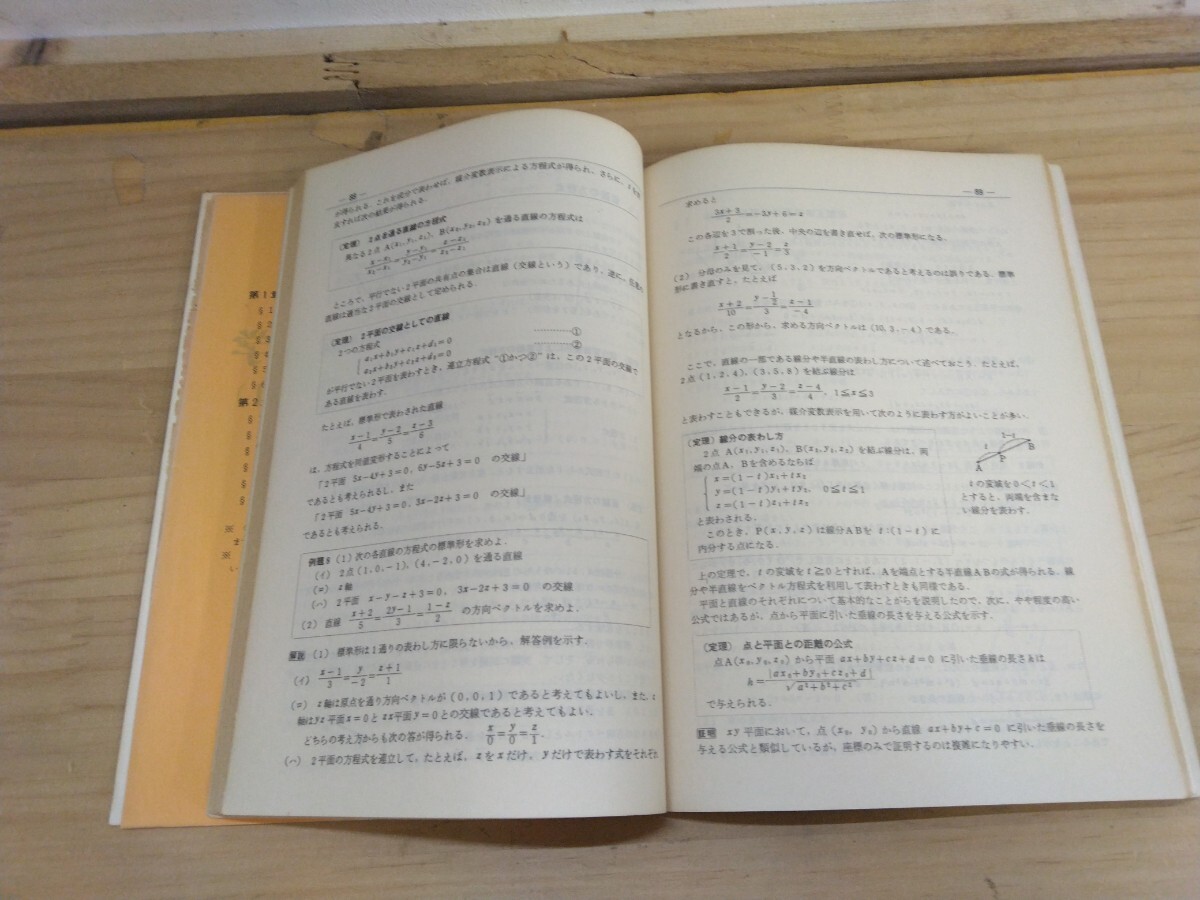 第1章
第2
※
※
— 88 —
が得られる．これを成分で表わせば，媒介変数表示による方程式が得られ，さらに，tを消
去すれば次の結果が得られる．
（定理） 2点を通る直線の方程式
異なる2点 A(x₁, y₁, z₁)，B(x₂, y₂, z₂) を通る直線の方程式は
(x−x₁)/(x₂−x₁)=(y−y₁)/(y₂−y₁)=(z−z₁)/(z₂−z₁)
ところで，平行でない2平面の共有点の集合は直線（交線という）であり，逆に，任意の
直線は適当な2平面の交線として定められる．
（定理） 2平面の交線としての直線
2つの方程式
a₁x+b₁y+c₁z+d₁=0 ………①
a₂x+b₂y+c₂z+d₂=0 ………②
が平行でない2平面を表わすとき，連立方程式 “①かつ②” は，この2平面の交線で
ある直線を表わす．
たとえば，標準形で表わされた直線
(x−1)/4=(y−2)/5=(z−3)/6
は，方程式を同値変形することによって
「2平面 5x−4y+3=0，6y−5z+3=0 の交線」
であるとも考えられるし，また
「2平面 5x−4y+3=0，3x−2z+3=0 の交線」
であるとも考えられる．
例題8 (1) 次の各直線の方程式の標準形を求めよ．
(イ) 2点(1, 0, −1)，(4, −2, 0) を通る直線
(ロ) z軸
(ハ) 2平面 x−y−z+3=0，3x−2z+3=0 の交線
(2) 直線 (x+2)/5=(2y−1)/3=(1−z)/2 の方向ベクトルを求めよ．
解説 (1) 標準形は1通りの表わし方に限らないから，解答例を示す．
(イ) (x−1)/3=y/−2=(z+1)/1
(ロ) z軸は原点を通り方向ベクトルが (0, 0, 1) であると考えてもよいし，また，z
軸はyz平面x=0とzx平面y=0との交線であると考えてもよい．
どちらの考え方からも次の答が得られる． x/0=y/0=z/1．
(ハ) 2平面の方程式を連立して，たとえば，zをxだけ，yだけで表わす式をそれぞれ
— 89 —
求めると
(3x+3)/2=−3y+6=z
この各辺を3で割った後，中央の辺を書き直せば，次の標準形になる．
(x+1)/2=(y−2)/−1=z/3
(2) 分母のみを見て，(5, 3, 2) を方向ベクトルであると考えるのは誤りである．標準
形に書き直すと，たとえば
(x+2)/10=(y−1/2)/3=(z−1)/−4
となるから，この形から，求める方向ベクトルは (10, 3, −4) である．
ここで，直線の一部である線分や半直線の表わし方について述べておこう．たとえば，
2点(1, 2, 4)，(3, 5, 8) を結ぶ線分は
(x−1)/2=(y−2)/3=(z−4)/4，1≦x≦3
と表わすこともできるが，媒介変数表示を用いて次のように表わす方がよいことが多い．
（定理）線分の表わし方
2点 A(x₁, y₁, z₁)，B(x₂, y₂, z₂) を結ぶ線分は，両
端の点A，Bを含めるならば
x=(1−t)x₁+tx₂
y=(1−t)y₁+ty₂， 0≦t≦1
z=(1−t)z₁+tz₂
と表わされる．
このとき，P(x, y, z) は線分ABを t:(1−t) に
内分する点になる．
t
1−t
A
P
B
tの変域を0<t<1
とすると，両端を含まな
い線分を表わす．
上の定理で，tの変域をt≧0とすれば，Aを端点とする半直線ABの式が得られる．線
分や半直線をベクトル方程式を利用して表わすときも同様である．
平面と直線のそれぞれについて基本的なことがらを説明したので，次に，やや程度の高い
公式ではあるが，点から平面に引いた垂線の長さを与える公式を示す．
（定理） 点と平面との距離の公式
点A(x₀, y₀, z₀) から平面 ax+by+cz+d=0 に引いた垂線の長さhは
h=|ax₀+by₀+cz₀+d|/√(a²+b²+c²)
で与えられる．
証明 xy平面において，点 (x₀, y₀) から直線 ax+by+c=0 に引いた垂線の長さを
与える公式と類似しているが，座標のみで証明するのは複雑になりやすい．